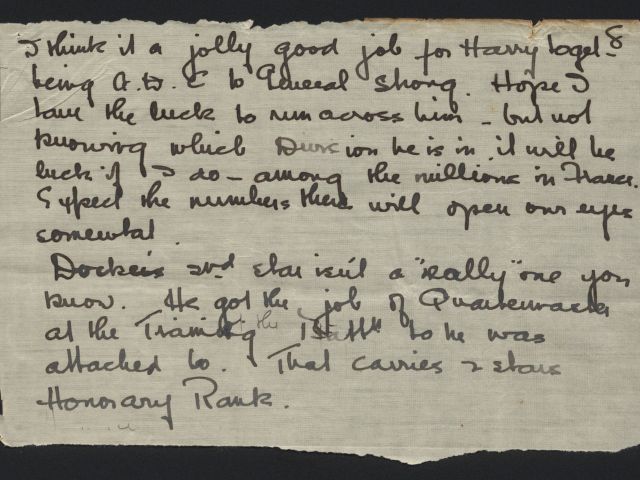 8
I think it a jolly good job for Harry to get -
being A.D.C to General Strong. Hope I
have the luck to run across him - but not
knowing which Division he is in it will be
luck if I do - among the millions in France.
Expect the numbers there will open our eyes
somewhat.
2nd star isn't a "really" one you
know. He got the job of Quartermaster
at the Training Battn to he was
attached to. That carries 2 stars
Honorary Rank.